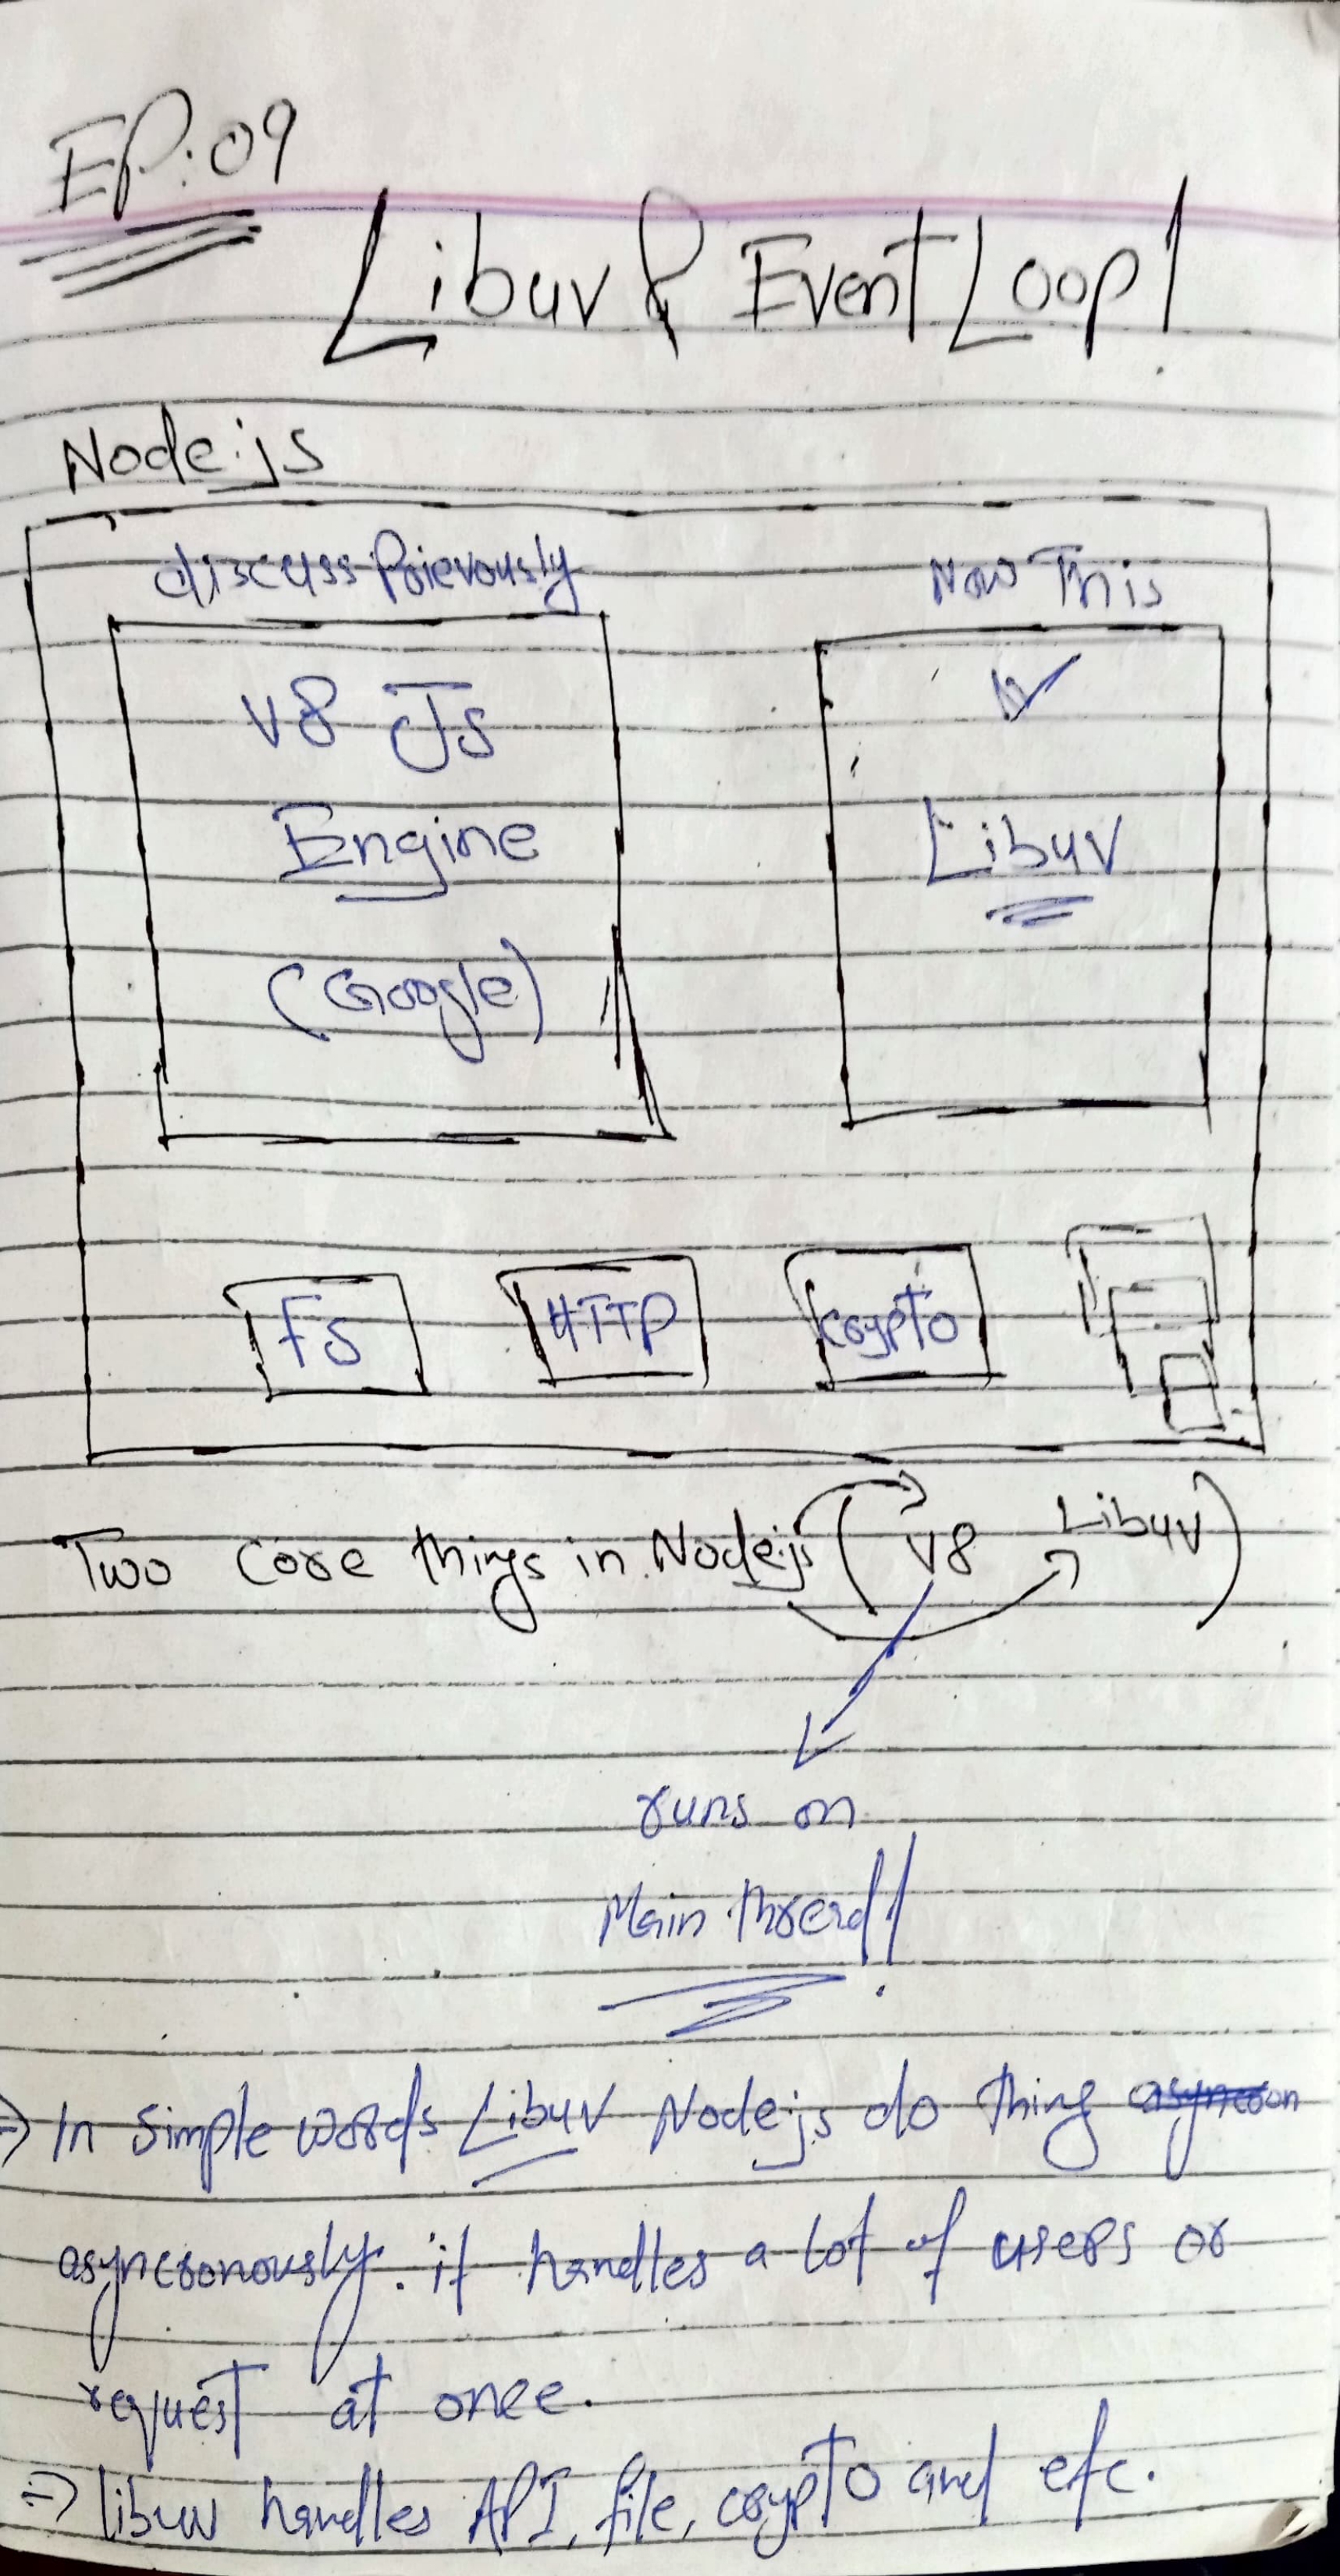 EP:09
Libuv & Event Loop!
Node.js
discuss Poievously
Now This
V8 JS
Engine
(Google)
Libuv
FS
HTTP
crypto
Two core things in Node.js ( V8 Libuv )
runs on
Main thread!
→ In Simple words Libuv Node.js do thing asyncron
asyncronously. it handles a lot of users or
request at once.
⇒ libuv handles API, file, crypto and etc.